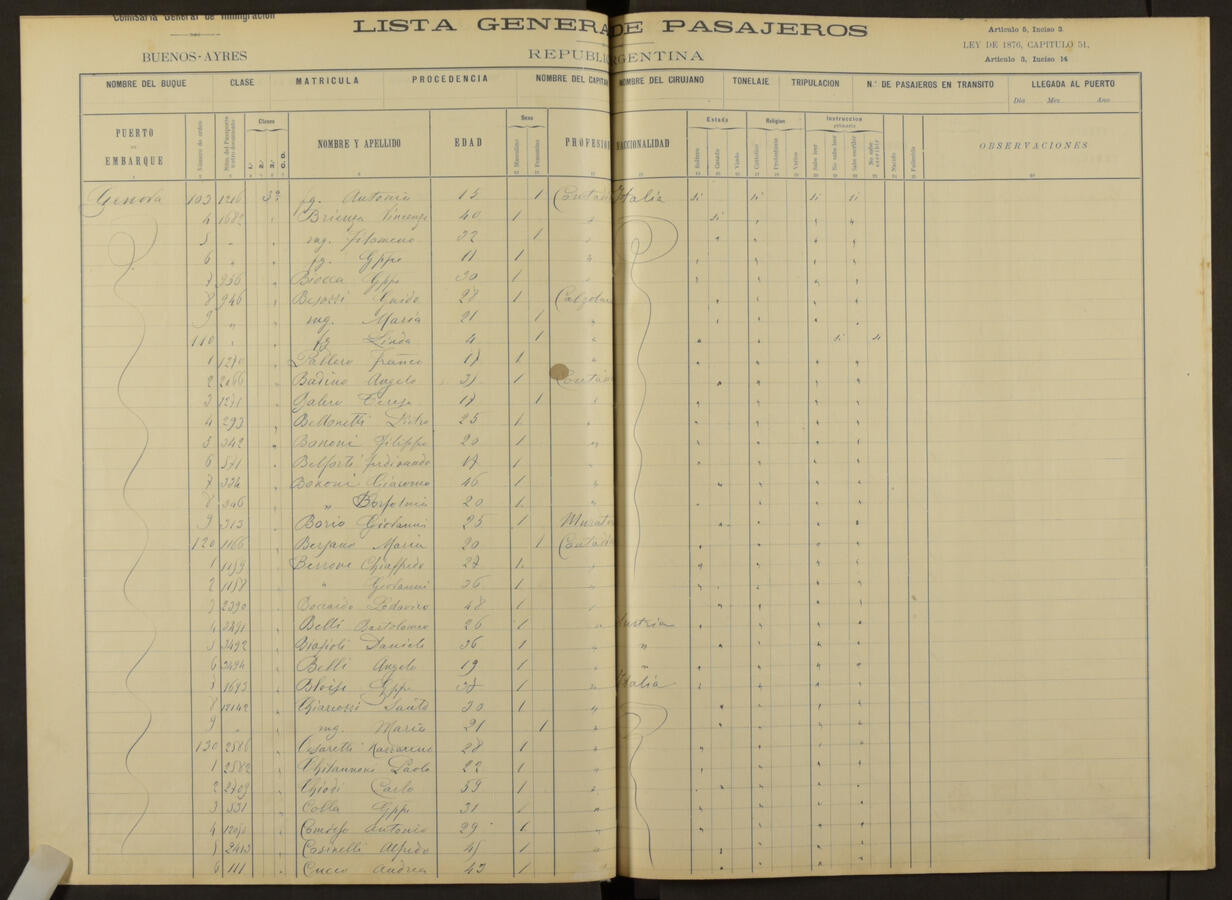 Comisaría General de Inmigración
LISTA GENERA DE PASAJEROS
Artículo 5, Inciso 3
BUENOS-AYRES
REPUBLI RGENTINA
LEY DE 1876, CAPITULO 51,
Artículo 3, Inciso 14
NOMBRE DEL BUQUE CLASE MATRICULA PROCEDENCIA NOMBRE DEL CAPITA NOMBRE DEL CIRUJANO TONELAJE TRIPULACION N.º DE PASAJEROS EN TRANSITO LLEGADA AL PUERTO
Día Mes Año
PUERTO DE EMBARQUE Número de orden Clases 1.ª 2.ª 3.ª NOMBRE Y APELLIDO EDAD Sexo Masculino Femenino PROFESIO NACIONALIDAD Estado Soltero Casado Viudo Religion Católico Protestante Varios Instruccion primaria Sabe leer No sabe leer Sabe escribir No sabe escribir Nacido Fallecido OBSERVACIONES
Genova 103 1216 3ª fg. Antonia 15 1 Contad Italia si si si si
4 1682 Brienza Vincenzo 40 1 " si
5 " mg. Filomena 32 1 "
6 " fg. Gppe 11 1 "
7 956 Biocca Gppe 30 1
8 946 Besozzi Guido 28 1 Calzolai
9 " mg. Maria 21 1 "
110 " fg Linda 4 1 " si si
1 1270 Franco 17 1 "
2 2166 Badino Angelo 31 1 Contad
3 1271 Galero Teresa 17 1 "
4 293 Bettonelli Pietro 25 1 "
5 342 Bononi Filippo 20 1 "
6 571 Belforti Ferdinando 17 1 "
7 334 Bononi Giacomo 46 1 "
8 346 " 20 1 "
9 313 Borio Giovanni 25 1 Murato
120 1166 Bersano Maria 20 1 Contad
1 1159 Berrone Chiaffredo 27 1 "
2 1158 " Giovanni 36 1 "
3 2390 Boccardo Lodovico 48 1 "
4 3491 Belli Bartolomeo 26 1 " Austria
5 3492 Biasioli Daniele 36 1 " "
6 3494 Belli Angelo 19 1 " "
7 1693 Bloise Gppe 37 1 " Italia
8 12142 Chiarossi Santo 30 1 "
9 " mg. Maria 21 1 "
130 2586 Cesaretti Nazzareno 28 1 "
1 2582 Paolo 22 1 "
2 2709 Chiodi Carlo 59 1 "
3 331 Colla Gppe 31 1 "
4 Antonio 29 1 "
5 2413 Casinelli Alfredo 45 1 "
6 111 Cucco Andrea 43 1 "